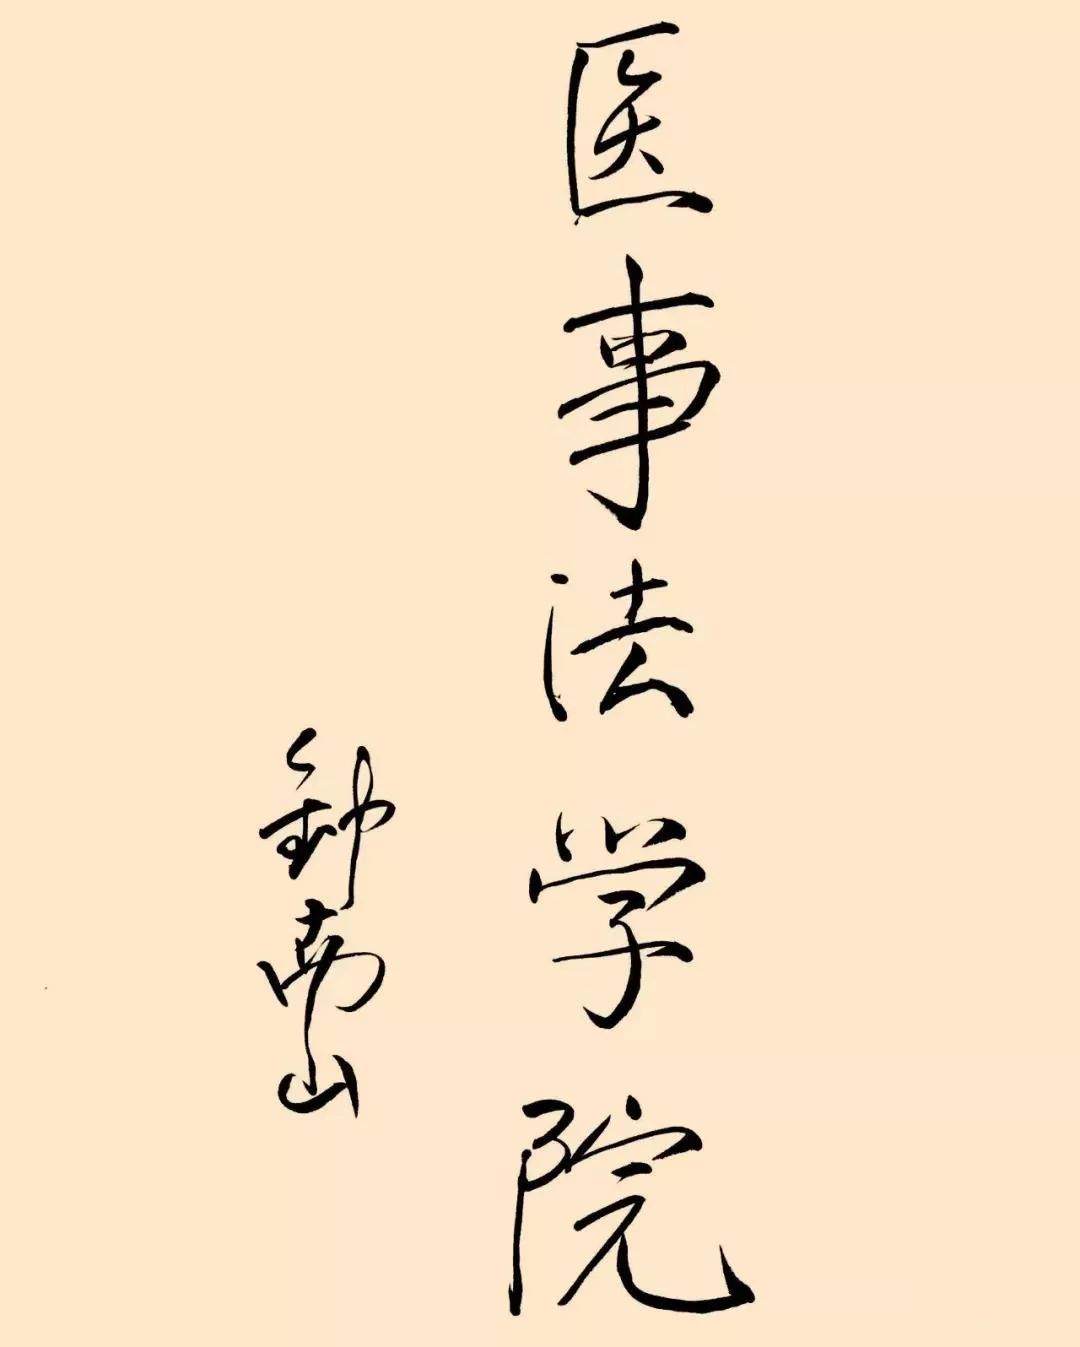 医事法学院
钟南山